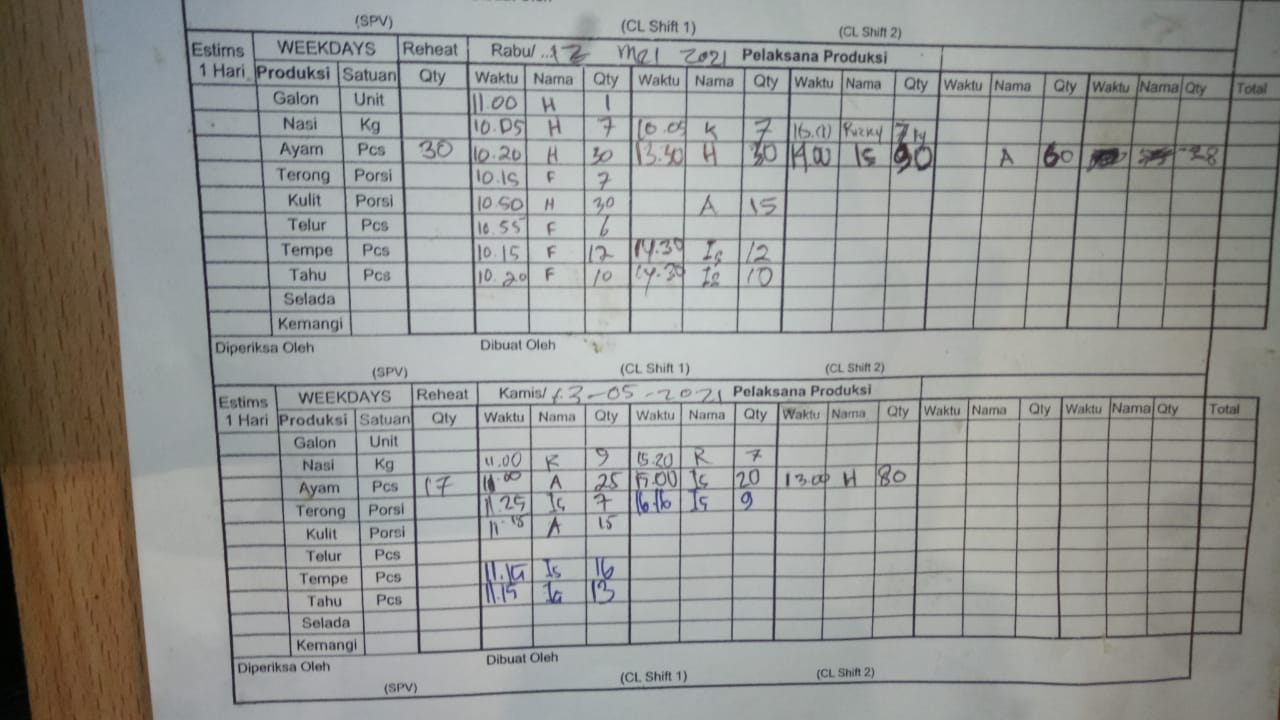 (SPV) (CL Shift 1) (CL Shift 2)
Estims WEEKDAYS Reheat Rabu/ ..12 Mei 2021 Pelaksana Produksi
1 Hari Produksi Satuan Qty Waktu Nama Qty Waktu Nama Qty Waktu Nama Qty Waktu Nama Qty Waktu Nama Qty Total
Galon Unit 11.00 H 1
Nasi Kg 10.05 H 7 10.05 K 7
Ayam Pcs 30 10.20 H 30 13.30 H 30 14.00 Is 90 A 60 28
Terong Porsi 10.15 F 7
Kulit Porsi 10.50 H 30 A 15
Telur Pcs 10.55 F 6
Tempe Pcs 10.15 F 12 14.30 Is 12
Tahu Pcs 10.20 F 10 14.30 Is 10
Selada
Kemangi
Diperiksa Oleh Dibuat Oleh
(SPV) (CL Shift 1) (CL Shift 2)
Estims WEEKDAYS Reheat Kamis/ 13-05-2021 Pelaksana Produksi
1 Hari Produksi Satuan Qty Waktu Nama Qty Waktu Nama Qty Waktu Nama Qty Waktu Nama Qty Waktu Nama Qty Total
Galon Unit
Nasi Kg 11.00 R 9 15.20 R 7
Ayam Pcs 17 11.00 A 25 15.00 Is 20 13.00 H 80
Terong Porsi 11.25 Is 7 16.16 Is 9
Kulit Porsi 11.15 A 15
Telur Pcs
Tempe Pcs 11.15 Is 16
Tahu Pcs 11.15 Is 13
Selada
Kemangi
Diperiksa Oleh Dibuat Oleh
(SPV) (CL Shift 1) (CL Shift 2)